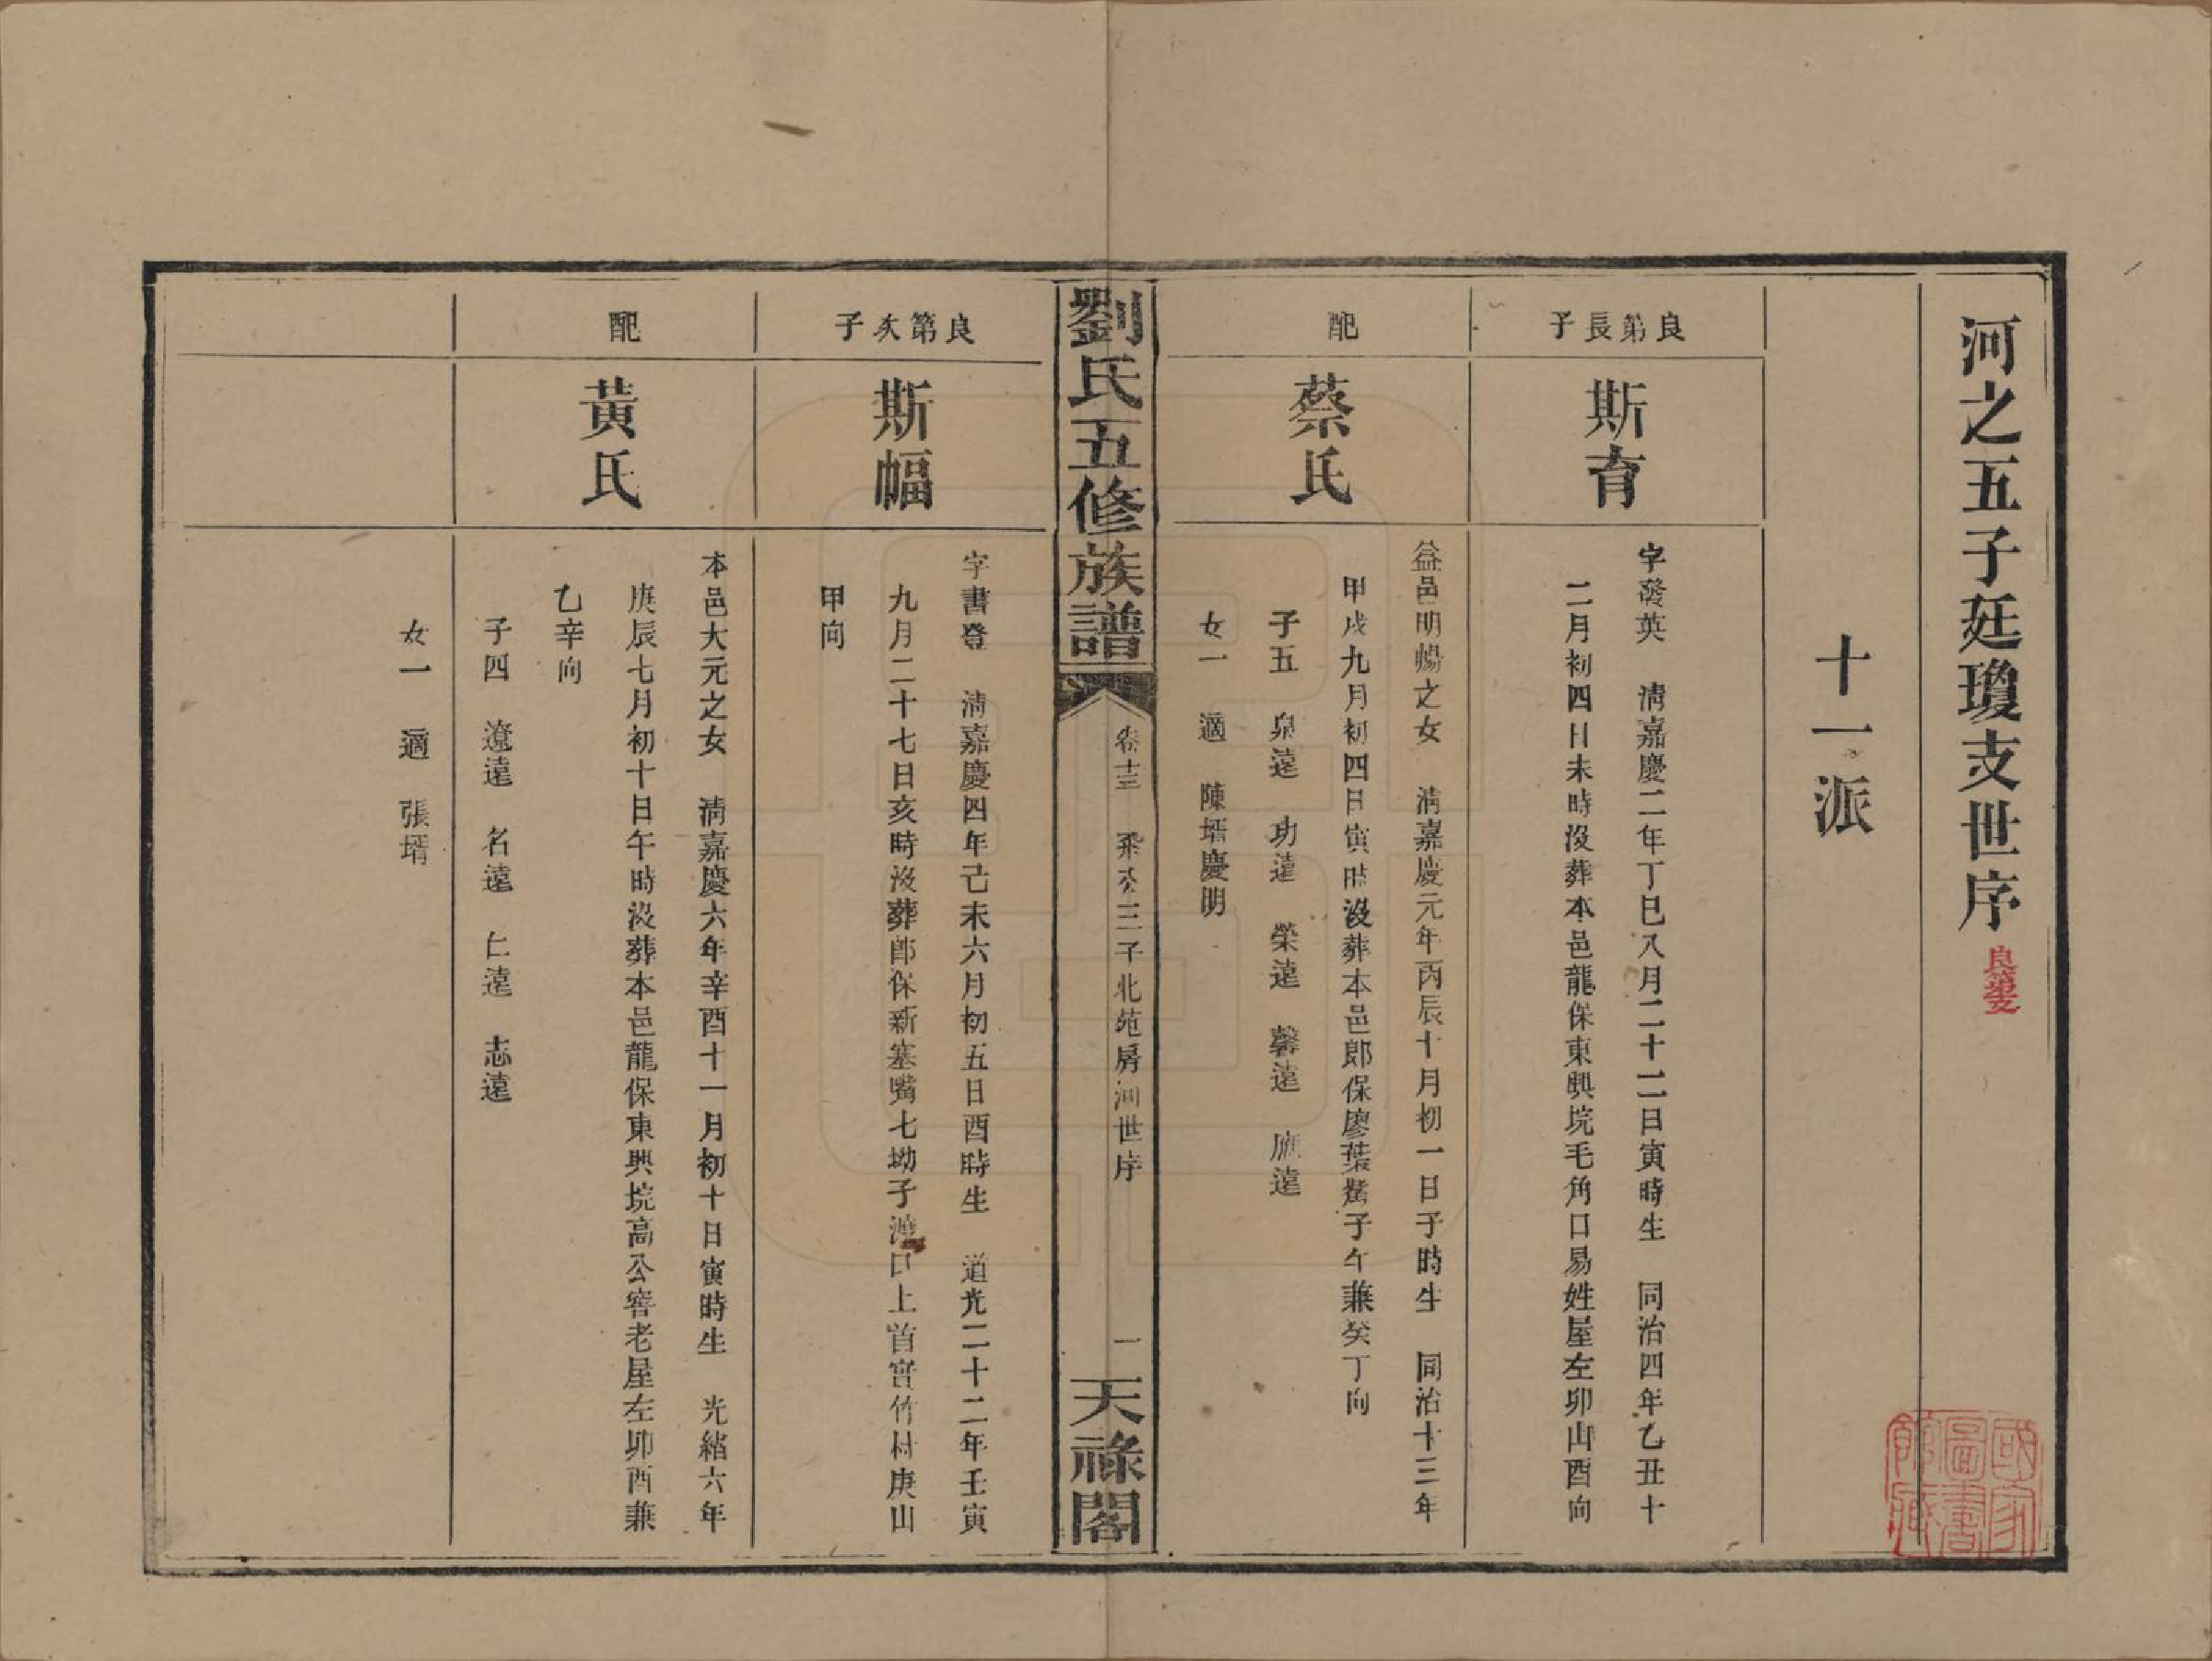 河之五子廷瓊支世序 良第支
十一派
良第長子
斯育
字發英 清嘉慶二年丁巳八月二十二日寅時生 同治四年乙丑十
二月初四日未時沒葬本邑龍保東興垸毛角口易姓屋左卯山酉向
配
蔡氏
益邑明暢之女 清嘉慶元年丙辰十月初一日子時生 同治十三年
甲戌九月初四日寅時沒葬本邑郎保廖葉觜子午兼癸丁向
子五 泉遠 功遠 榮遠 馨遠 應遠
女一 適 陳壻慶明
劉氏五修族譜
卷十三 公三子北苑房河世序
一
天祿閣
良第次子
斯幅
字書登 清嘉慶四年己未六月初五日酉時生 道光二十二年壬寅
九月二十七日亥時沒葬郎保新塞嘴七坳子灣口上首窖竹村庚山
甲向
配
黃氏
本邑大元之女 清嘉慶六年辛酉十一月初十日寅時生 光緒六年
庚辰七月初十日午時沒葬本邑龍保東興垸高公窖老屋左卯酉兼
乙辛向
子四 遼遠 名遠 仁遠 志遠
女一 適 張壻
國家圖書館藏